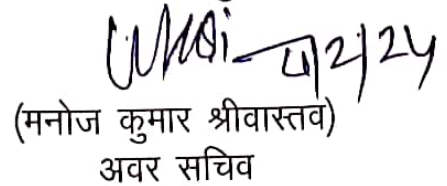 4/2/24
(मनोज कुमार श्रीवास्तव)
अवर सचिव